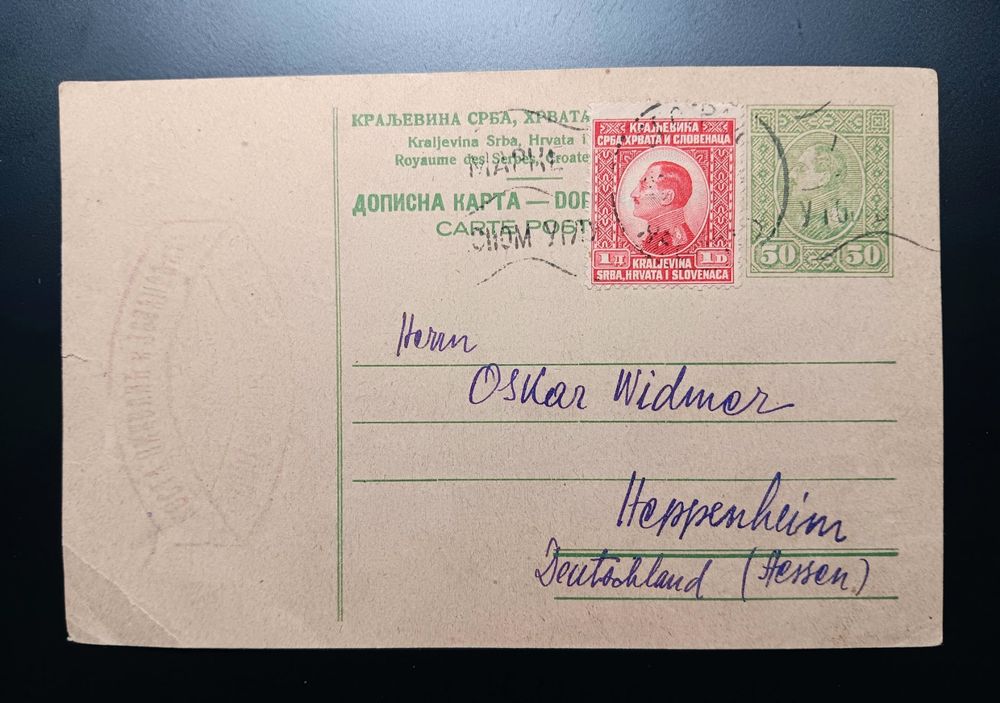 КРАЉЕВИНА СРБА, ХРВАТА
Kraljevina Srba, Hrvata i
Royaume des Serbes, Croate
ДОПИСНА КАРТА — DOP
CARTE POST
МАРКЕ
КРАЉЕВИНА
СРБА, ХРВАТА И СЛОВЕНАЦА
1Д 1D
KRALJEVINA
SRBA, HRVATA I SLOVENACA
50 50
Herrn
Oskar Widmer
Heppenheim
Deutschland (Hessen)